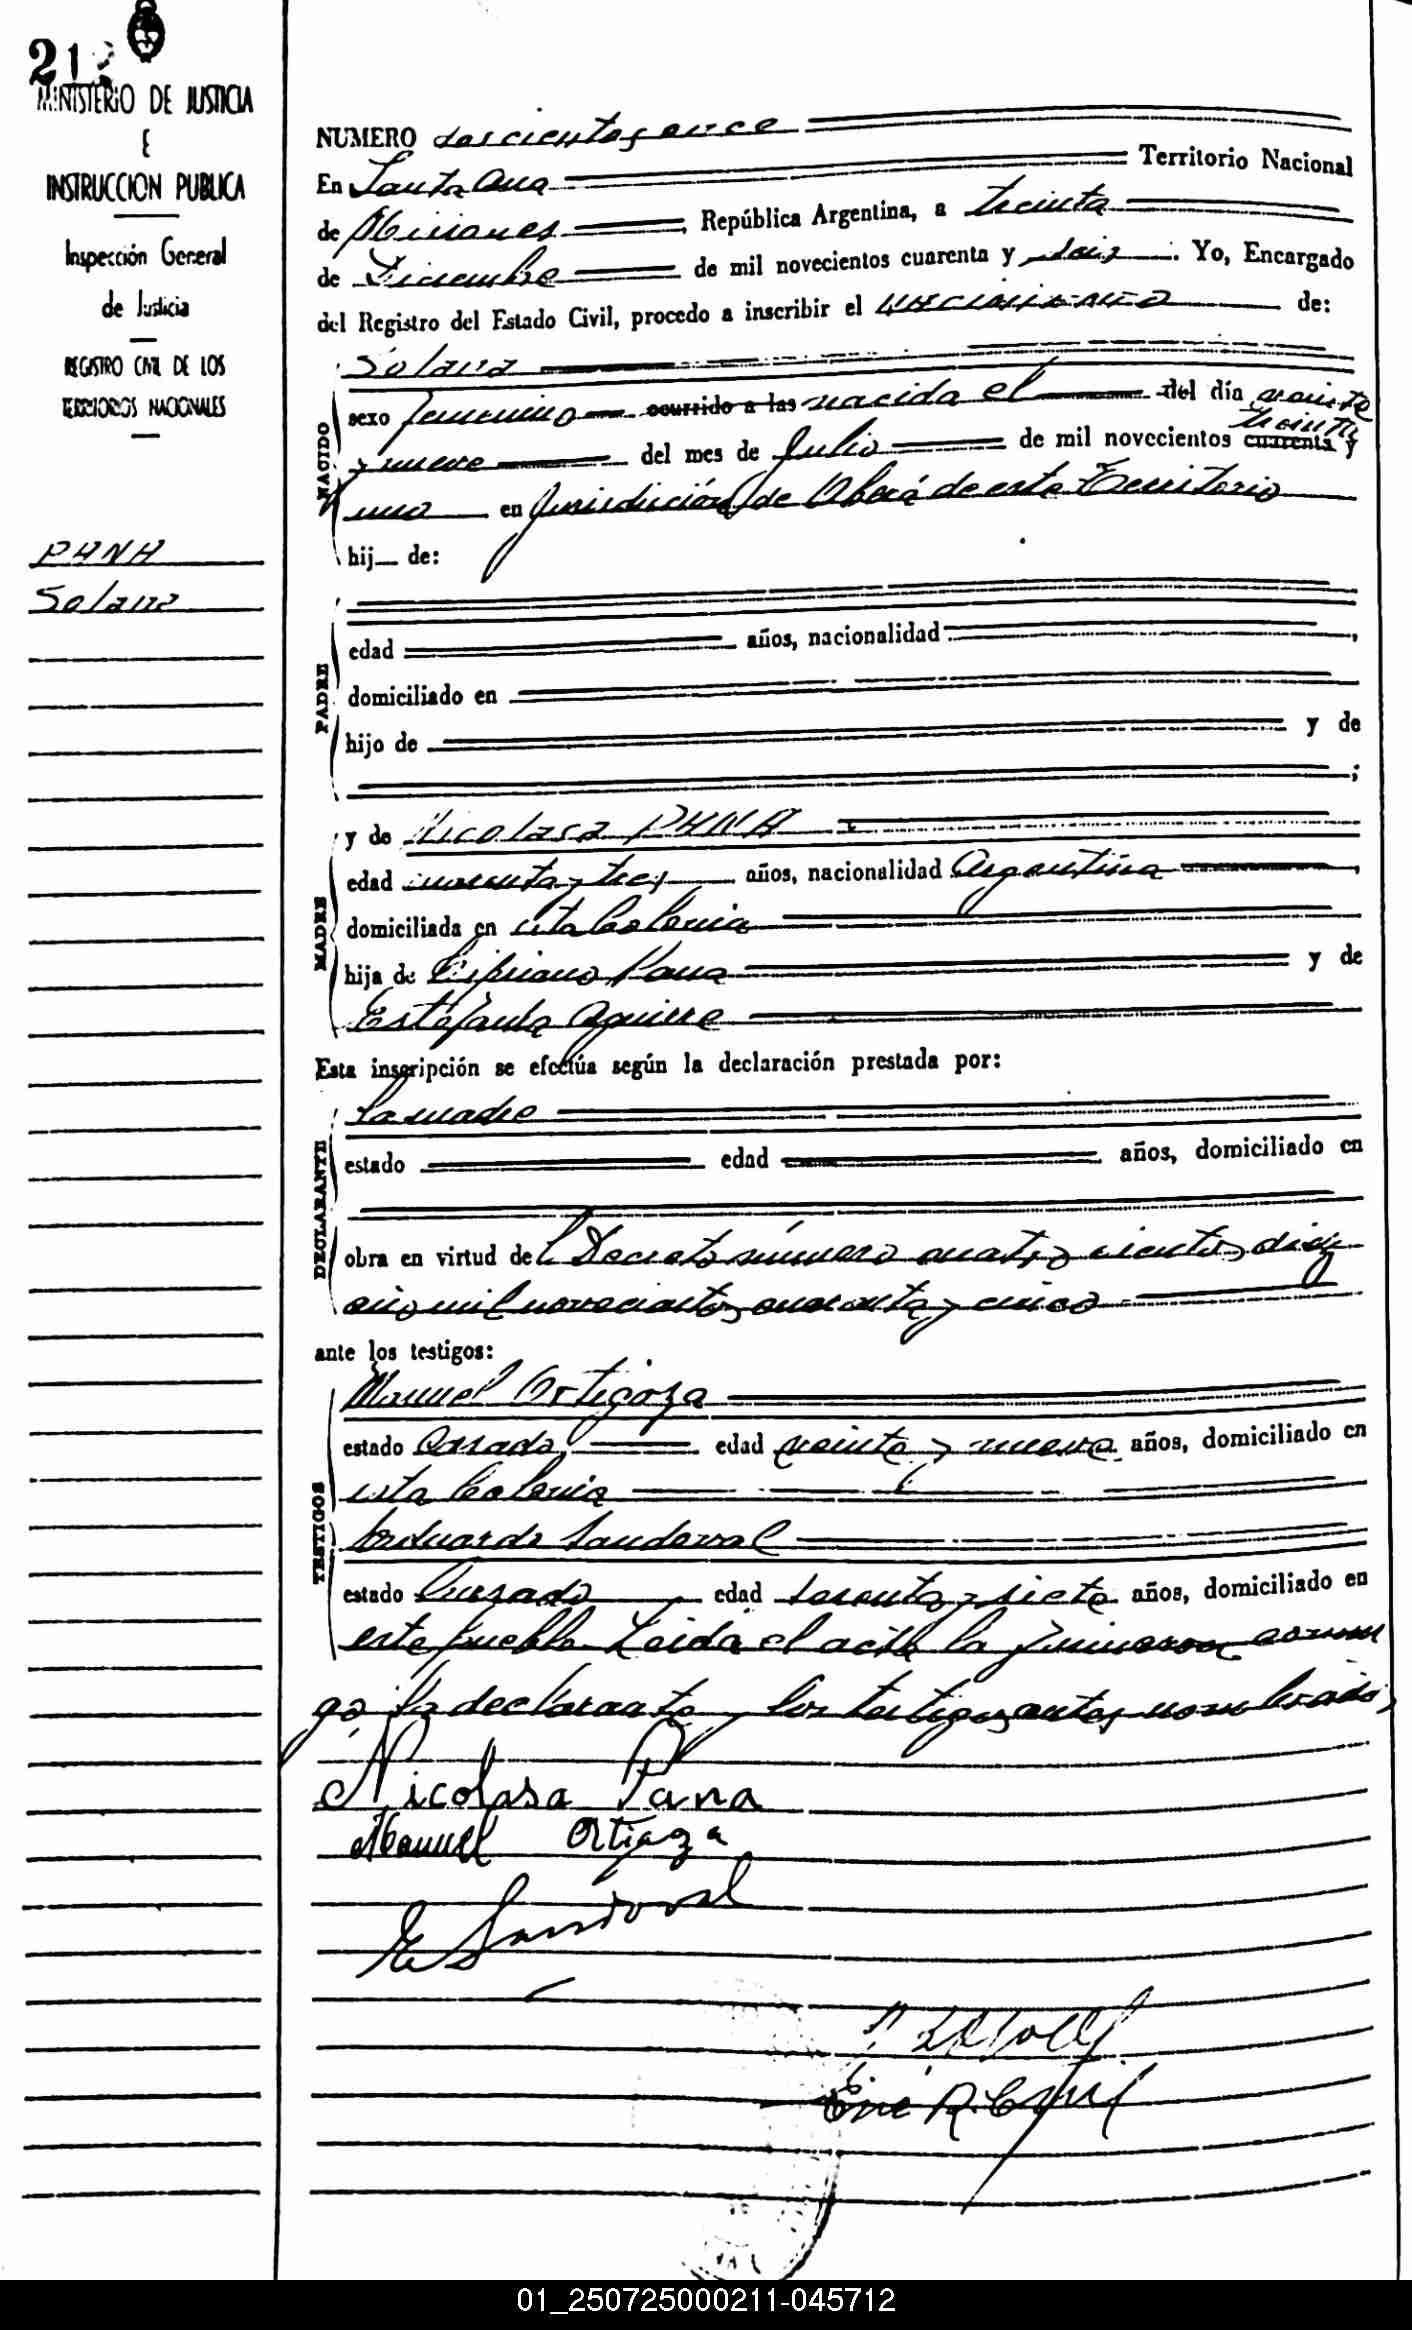 21
MINISTERIO DE JUSTICIA
E
INSTRUCCION PUBLICA
Inspección General
de Justicia
REGISTRO CIVIL DE LOS
TERRITORIOS NACIONALES
PANA
Solana
NUMERO doscientos once
En Santa Ana Territorio Nacional
de Misiones, República Argentina, a treinta
de Diciembre de mil novecientos cuarenta y seis. Yo, Encargado
del Registro del Estado Civil, procedo a inscribir el nacimiento de:
NACIDO
Solana
sexo femenino ocurrido a las nacida el del día veinte
y nueve del mes de Julio de mil novecientos cuarenta y treinta y
uno en Jurisdicción de Oberá de este Territorio
hij de:
PADRE
edad años, nacionalidad ,
domiciliado en
hijo de y de
;
MADRE
y de Nicolasa PANA
edad cuarenta y tres años, nacionalidad Argentina,
domiciliada en esta Colonia
hija de Cipriano Pana y de
Estefanía Aguirre
Esta inscripción se efectúa según la declaración prestada por:
DECLARANTE
La madre
estado edad años, domiciliado en
obra en virtud del Decreto número cuatrocientos diez
año mil novecientos cuarenta y cinco
ante los testigos:
TESTIGOS
Manuel Ortigoza
estado Casado edad veinte y nueve años, domiciliado en
esta Colonia
Eduardo Sandoval
estado Casado edad sesenta y siete años, domiciliado en
este pueblo. Leida el acta la firmaron conmi
go la declarante y los testigos antes nombrados
Nicolasa Pana
Manuel Ortigaza
E Sandoval
01_250725000211-045712